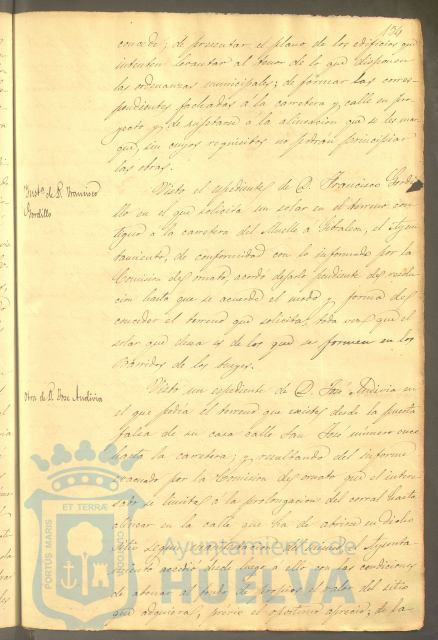 134
concede; de presentar el plano de los edificios que
intenten levantar al tenor de lo que disponen
las ordenanzas municipales; de formar las corres-
pondientes fachadas a la carretera y calle en pro-
yecto y de sujetarse a la alineacion que se les mar-
que, sin cuyos requisitos no podrán principiar
las obras.
Inst.ª de D. Francisco
Gordillo
Visto el espediente de D. Francisco Gordi-
llo en el que solicita un solar en el terreno con-
tiguo a la carretera del Muelle a Gibraleon, el Ayun-
tamiento, de conformidad con lo informado por la
Comision de ornato, acordo dejarlo pendiente de resolu-
cion hasta que se acuerde el modo y forma de
conceder el terreno que solicita, toda vez que el
solar que desea es de los que se formen en los
de los suyos.
Otra de D. Jose Andivia
Visto un espediente de D. José Andivia en
el que pedia el terreno que existe desde la puerta
falsa de su casa calle San José número once
hasta la carretera; y resultando del informe
evacuado por la Comision de ornato que el intere-
sado se limita a la prolongacion del corral hasta
alinear en la calle que ha de abrirse en dicho
sitio segun el Ayunta-
miento accedió desde luego a ello con las condiciones
de abonar al fondo de propios el valor del sitio
que adquiera, previo el oportuno aprecio; de la
PORTUS MARIS
ET TERRÆ
CUSTODIA
Ayuntamiento de
HUELVA